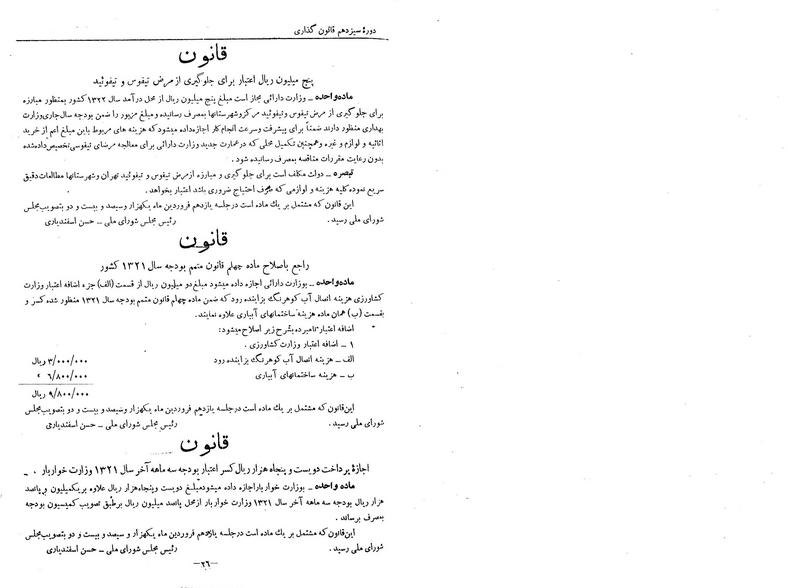 دورهٔ سیزدهم قانون گذاری
قانون
پنج میلیون ریال اعتبار برای جلوگیری از مرض تیفوس و تیفوئید
ماده واحده ــ وزارت دارائی مجاز است مبلغ پنج میلیون ریال از محل درآمد سال ۱۳۲۲ کشور بمنظور مبارزه
برای جلوگیری از مرض تیفوس و تیفوئید مرکز و شهرستانها بمصرف رسانیده و مبلغ مزبور را ضمن بودجه سال جاری وزارت
بهداری منظور دارند ضمناً برای پیشرفت و سرعت انجام کار اجازه داده میشود که هزینه های مربوط باین مبلغ اعم از خرید
اثاثیه و لوازم و غیره و همچنین تکمیل محلی که در عمارت جدید وزارت دارائی برای معالجه مرضای تیفوسی تخصیص داده شده
بدون رعایت مقررات مناقصه بمصرف رسانیده شود .
تبصره ــ دولت مکلف است برای جلوگیری و مبارزه از مرض تیفوس و تیفوئید تهران و شهرستانها مطالعات دقیق
سریع نموده کلیه هزینه و لوازمی که طرف احتیاج ضروری باشد اعتبار بخواهد .
این قانون که مشتمل بر یك ماده است در جلسه یازدهم فروردین ماه یکهزار و سیصد و بیست و دو بتصویب مجلس
شورای ملی رسید . رئیس مجلس شورای ملی ــ حسن اسفندیاری
قانون
راجع باصلاح ماده چهلم قانون متمم بودجه سال ۱۳۲۱ کشور
ماده واحده ــ بوزارت دارائی اجازه داده میشود مبلغ دو میلیون ریال از قسمت (الف) جزء اضافه اعتبار وزارت
کشاورزی هزینه اتصال آب کوهرنگ بزاینده رود که ضمن ماده چهلم قانون متمم بودجه سال ۱۳۲۱ منظور شده کسر و
بقسمت (ب) همان ماده هزینه ساختمانهای آبیاری علاوه نمایند.
اضافه اعتبار نامبرده بشرح زیر اصلاح میشود:
۱ ــ اضافه اعتبار وزارت کشاورزی .
الف ــ هزینه اتصال آب کوهرنگ بزاینده رود ۳/۰۰۰/۰۰۰ ریال
ب ــ هزینه ساختمانهای آبیاری ۶/۸۰۰/۰۰۰ »
۹/۸۰۰/۰۰۰ ریال
این قانون که مشتمل بر یك ماده است در جلسه یازدهم فروردین ماه یکهزار و سیصد و بیست و دو بتصویب مجلس
شورای ملی رسید . رئیس مجلس شورای ملی ــ حسن اسفندیاری
قانون
اجازه پرداخت دویست و پنجاه هزار ریال کسر اعتبار بودجه سه ماهه آخر سال ۱۳۲۱ وزارت خواربار .
ماده واحده ــ بوزارت خواربار اجازه داده میشود مبلغ دویست و پنجاه هزار ریال علاوه بر یکمیلیون و پانصد
هزار ریال بودجه سه ماهه آخر سال ۱۳۲۱ وزارت خواربار از محل پانصد میلیون ریال بر طبق تصویب کمیسیون بودجه
بمصرف برساند .
این قانون که مشتمل بر یك ماده است در جلسه یازدهم فروردین ماه یکهزار و سیصد و بیست و دو بتصویب مجلس
شورای ملی رسید . رئیس مجلس شورای ملی ــ حسن اسفندیاری
—۲۶—